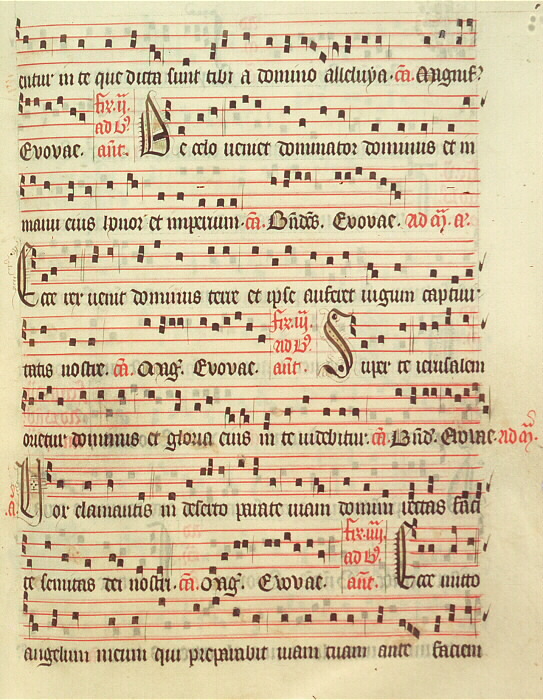 entur in te que dicta sunt tibi a domino alleluya. ca. Magnif?
Evovae. fer. ij. ad b? ant. De celo veniet dominator dominus et in
manu eius honor et imperium. ca. Bñdcs. Evovae. ad m. a.
Ecce rex veniet dominus terre et ipse auferet iugum captiui-
tatis nostre. ca. Mag. Evovae. fer. iij. ad b? ant. Super te ierusalem
orietur dominus et gloria eius in te videbitur. ca. Bñd. Evovae. ad m.
Vox clamantis in deserto parate viam domini rectas faci
te semitas dei nostri. ca. Mag. Evovae. fer. iiij. ad b? ant. Ecce mitto
angelum meum qui preparabit viam tuam ante faciem